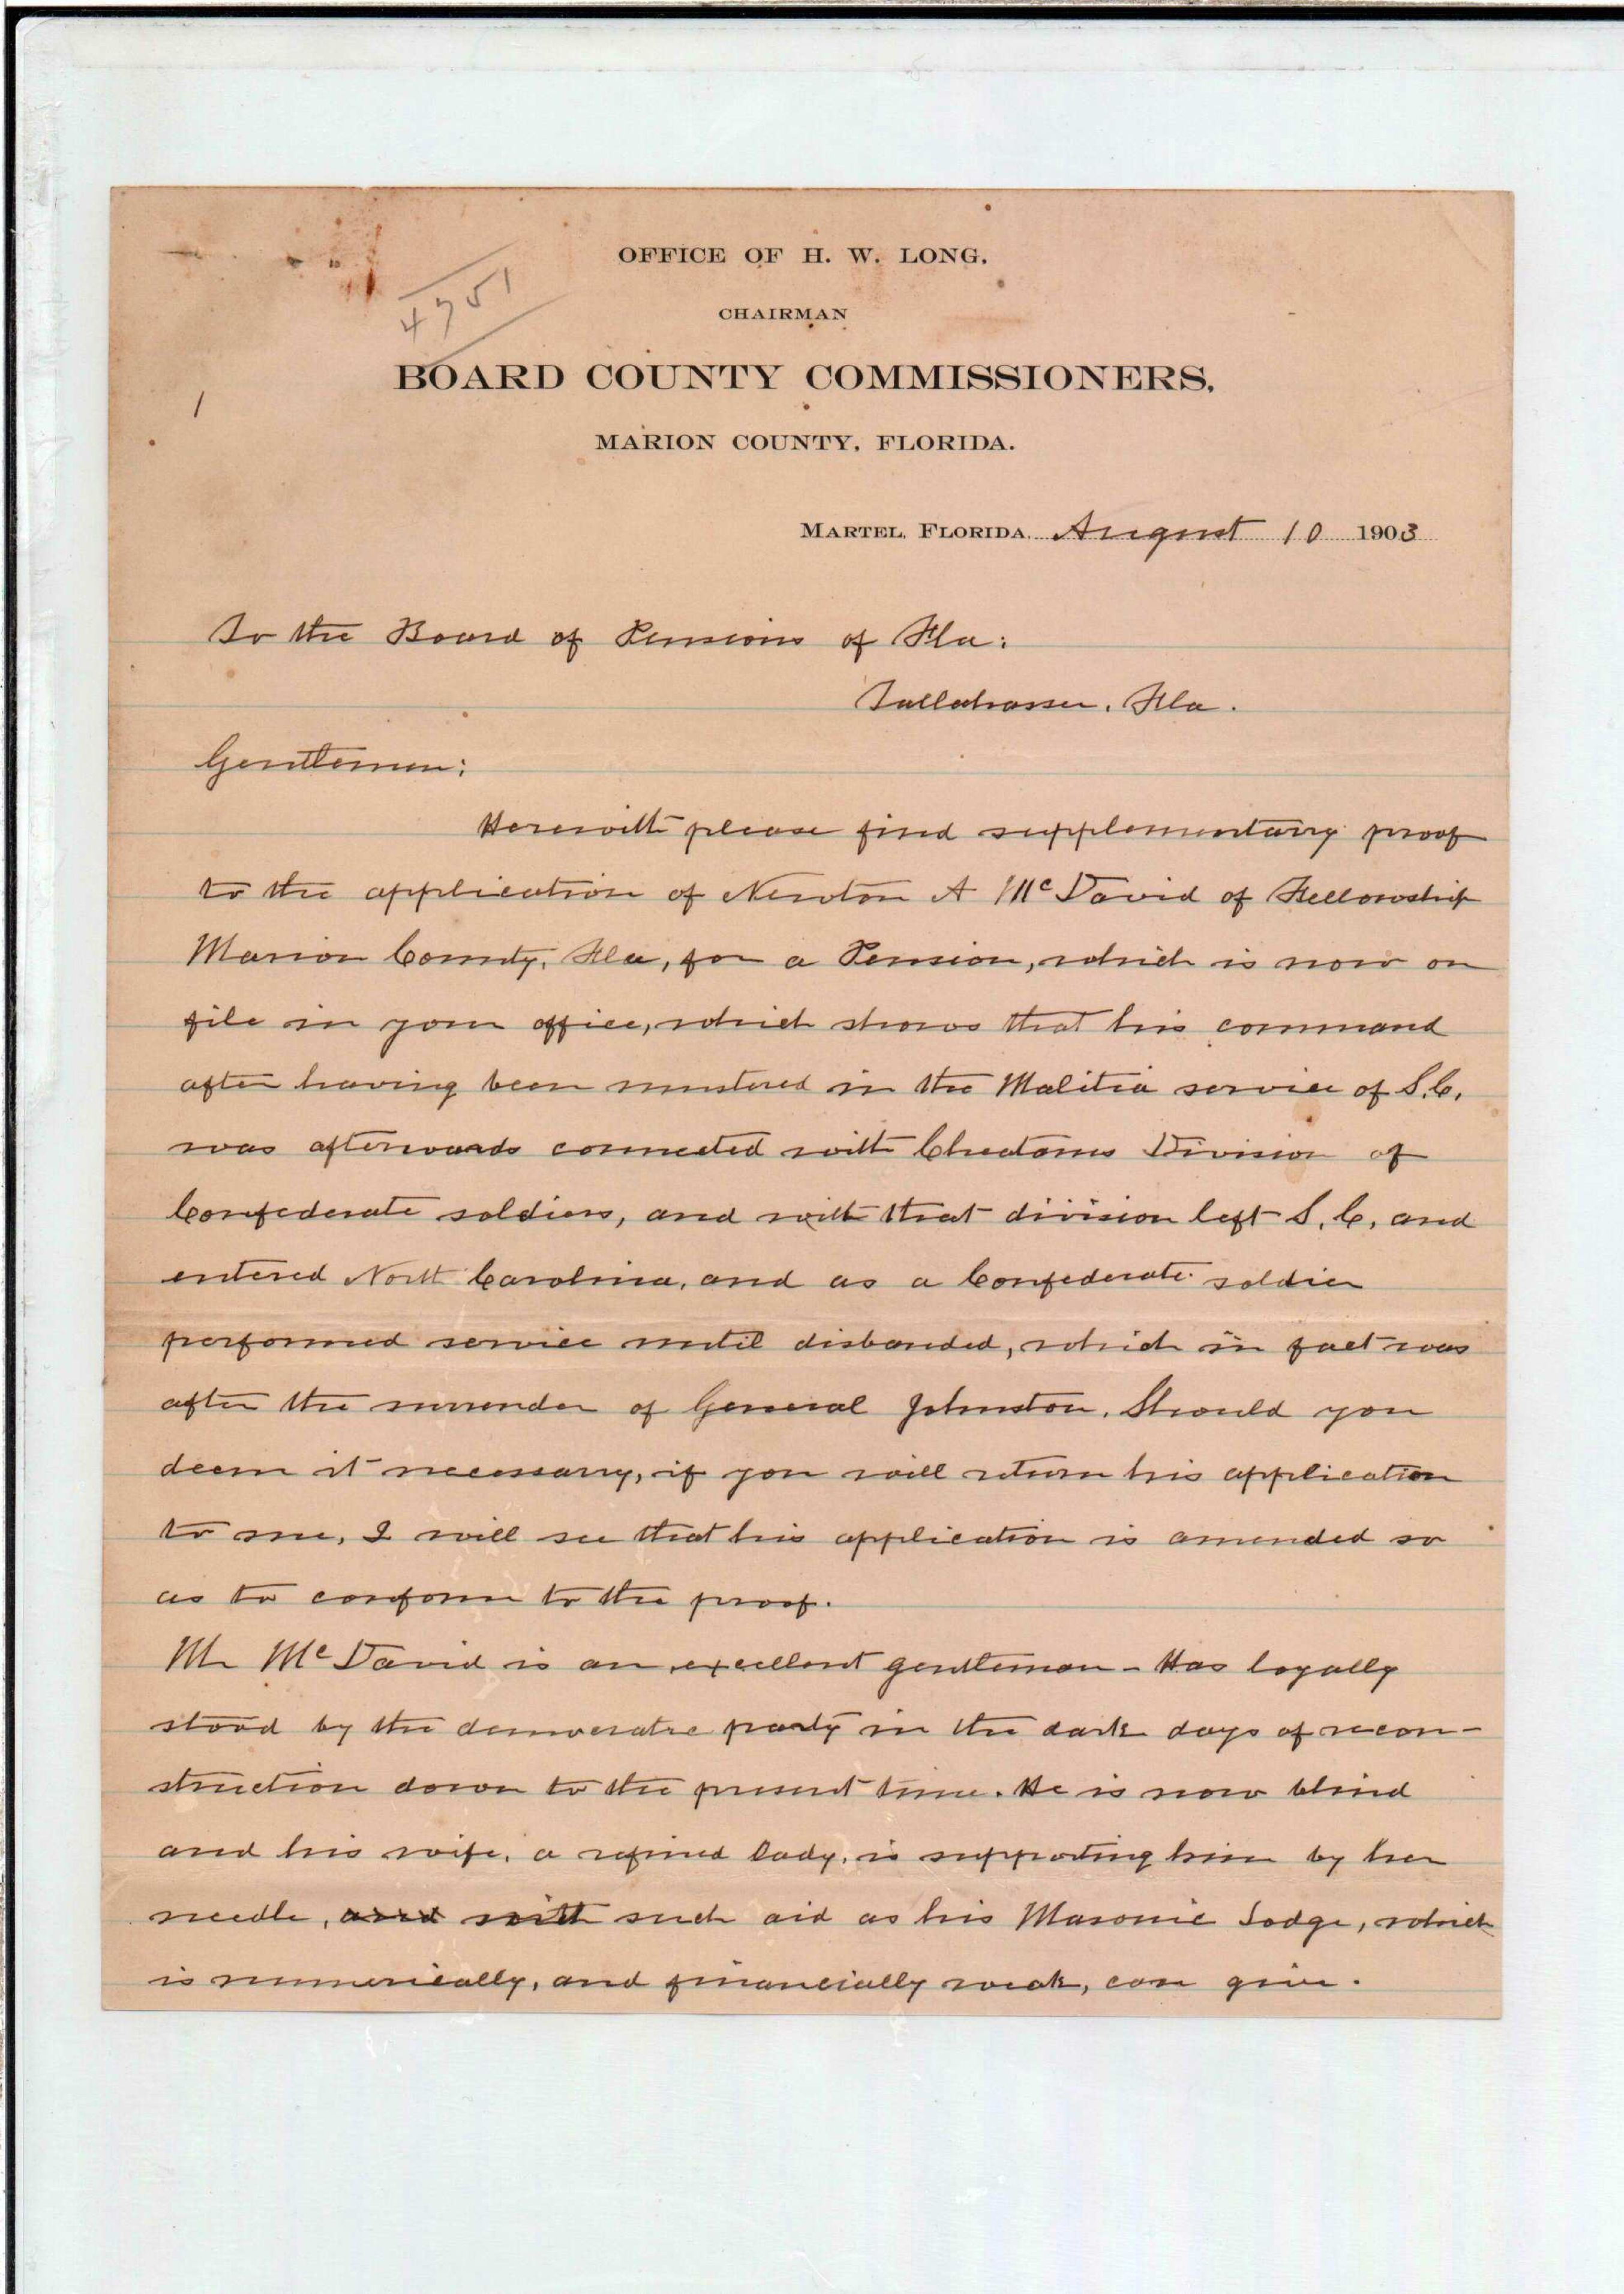 OFFICE OF H. W. LONG,
4751
CHAIRMAN
BOARD COUNTY COMMISSIONERS,
1
MARION COUNTY, FLORIDA.
MARTEL, FLORIDA. August 10 1903
To the Board of Pensions of Fla:
Tallahassee, Fla.
Gentlemen:
Herewith please find supplementary proof
to the application of Newton A McDavid of Fellowship
Marion County, Fla, for a Pension, which is now on
file in your office, which shows that his command
after having been mustered in the Malitia service of S.C.
was afterwards connected with Cheatams Division of
Confederate soldiers, and with that division left S.C. and
entered North Carolina, and as a Confederate soldier
performed service until disbanded, which in fact was
after the surrender of General Johnston. Should you
deem it necessary, if you will return his application
to me, I will see that his application is amended so
as to conform to the proof.
Mr McDavid is an excellent gentleman - Has loyally
stood by the democratic party in the dark days of recon-
struction down to the present time. He is now blind
and his wife, a refined lady, is supporting him by her
needle, and with such aid as his Masonic Lodge, which
is numerically, and financially weak, can give.